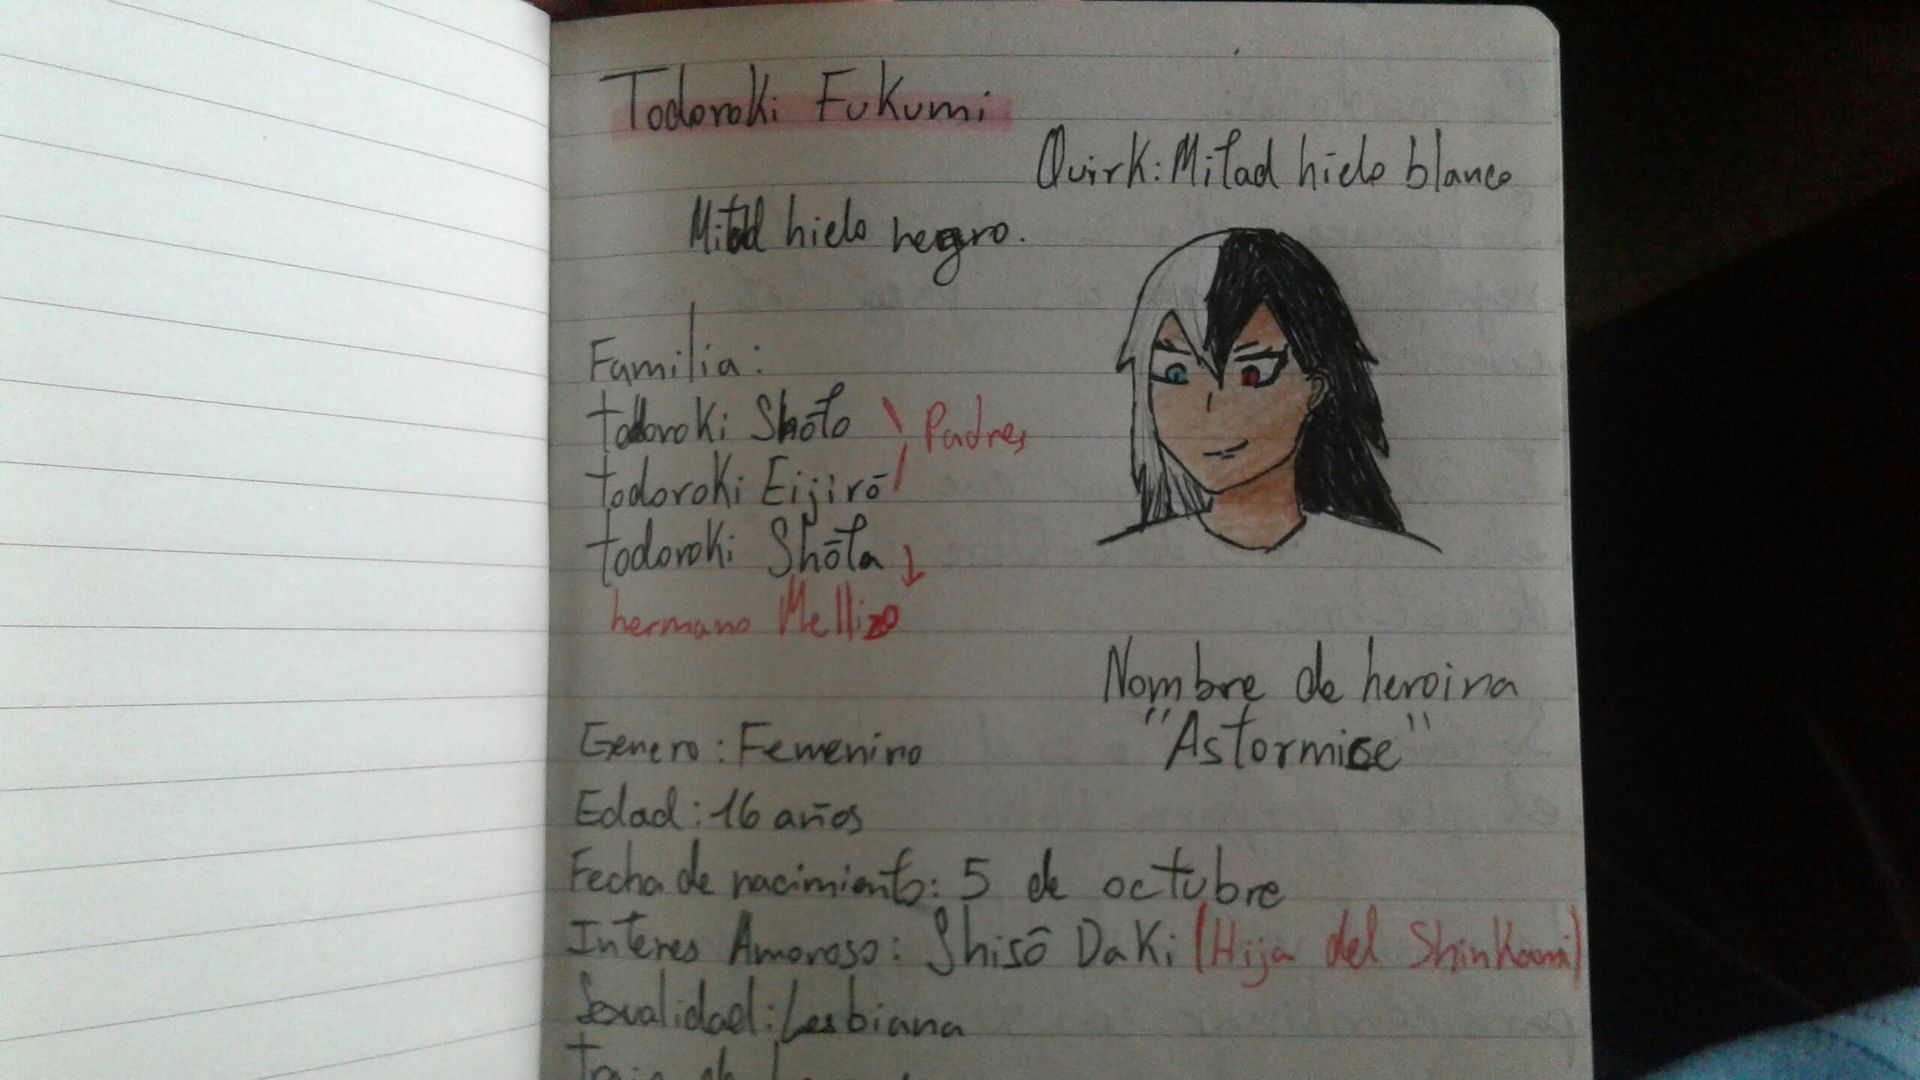 Todoroki Fukumi
Quirk: Mitad hielo blanco
Mitad hielo negro.
Familia:
todoroki Shōto
Padres
todoroki Eijirō
todoroki Shōta
hermano Mellizo
Nombre de heroina
"Astormice"
Genero: Femenino
Edad: 16 años
Fecha de nacimiento: 5 de octubre
Interes Amoroso: Shisō Daki (Hija del Shinkami)
Sexualidad: Lesbiana